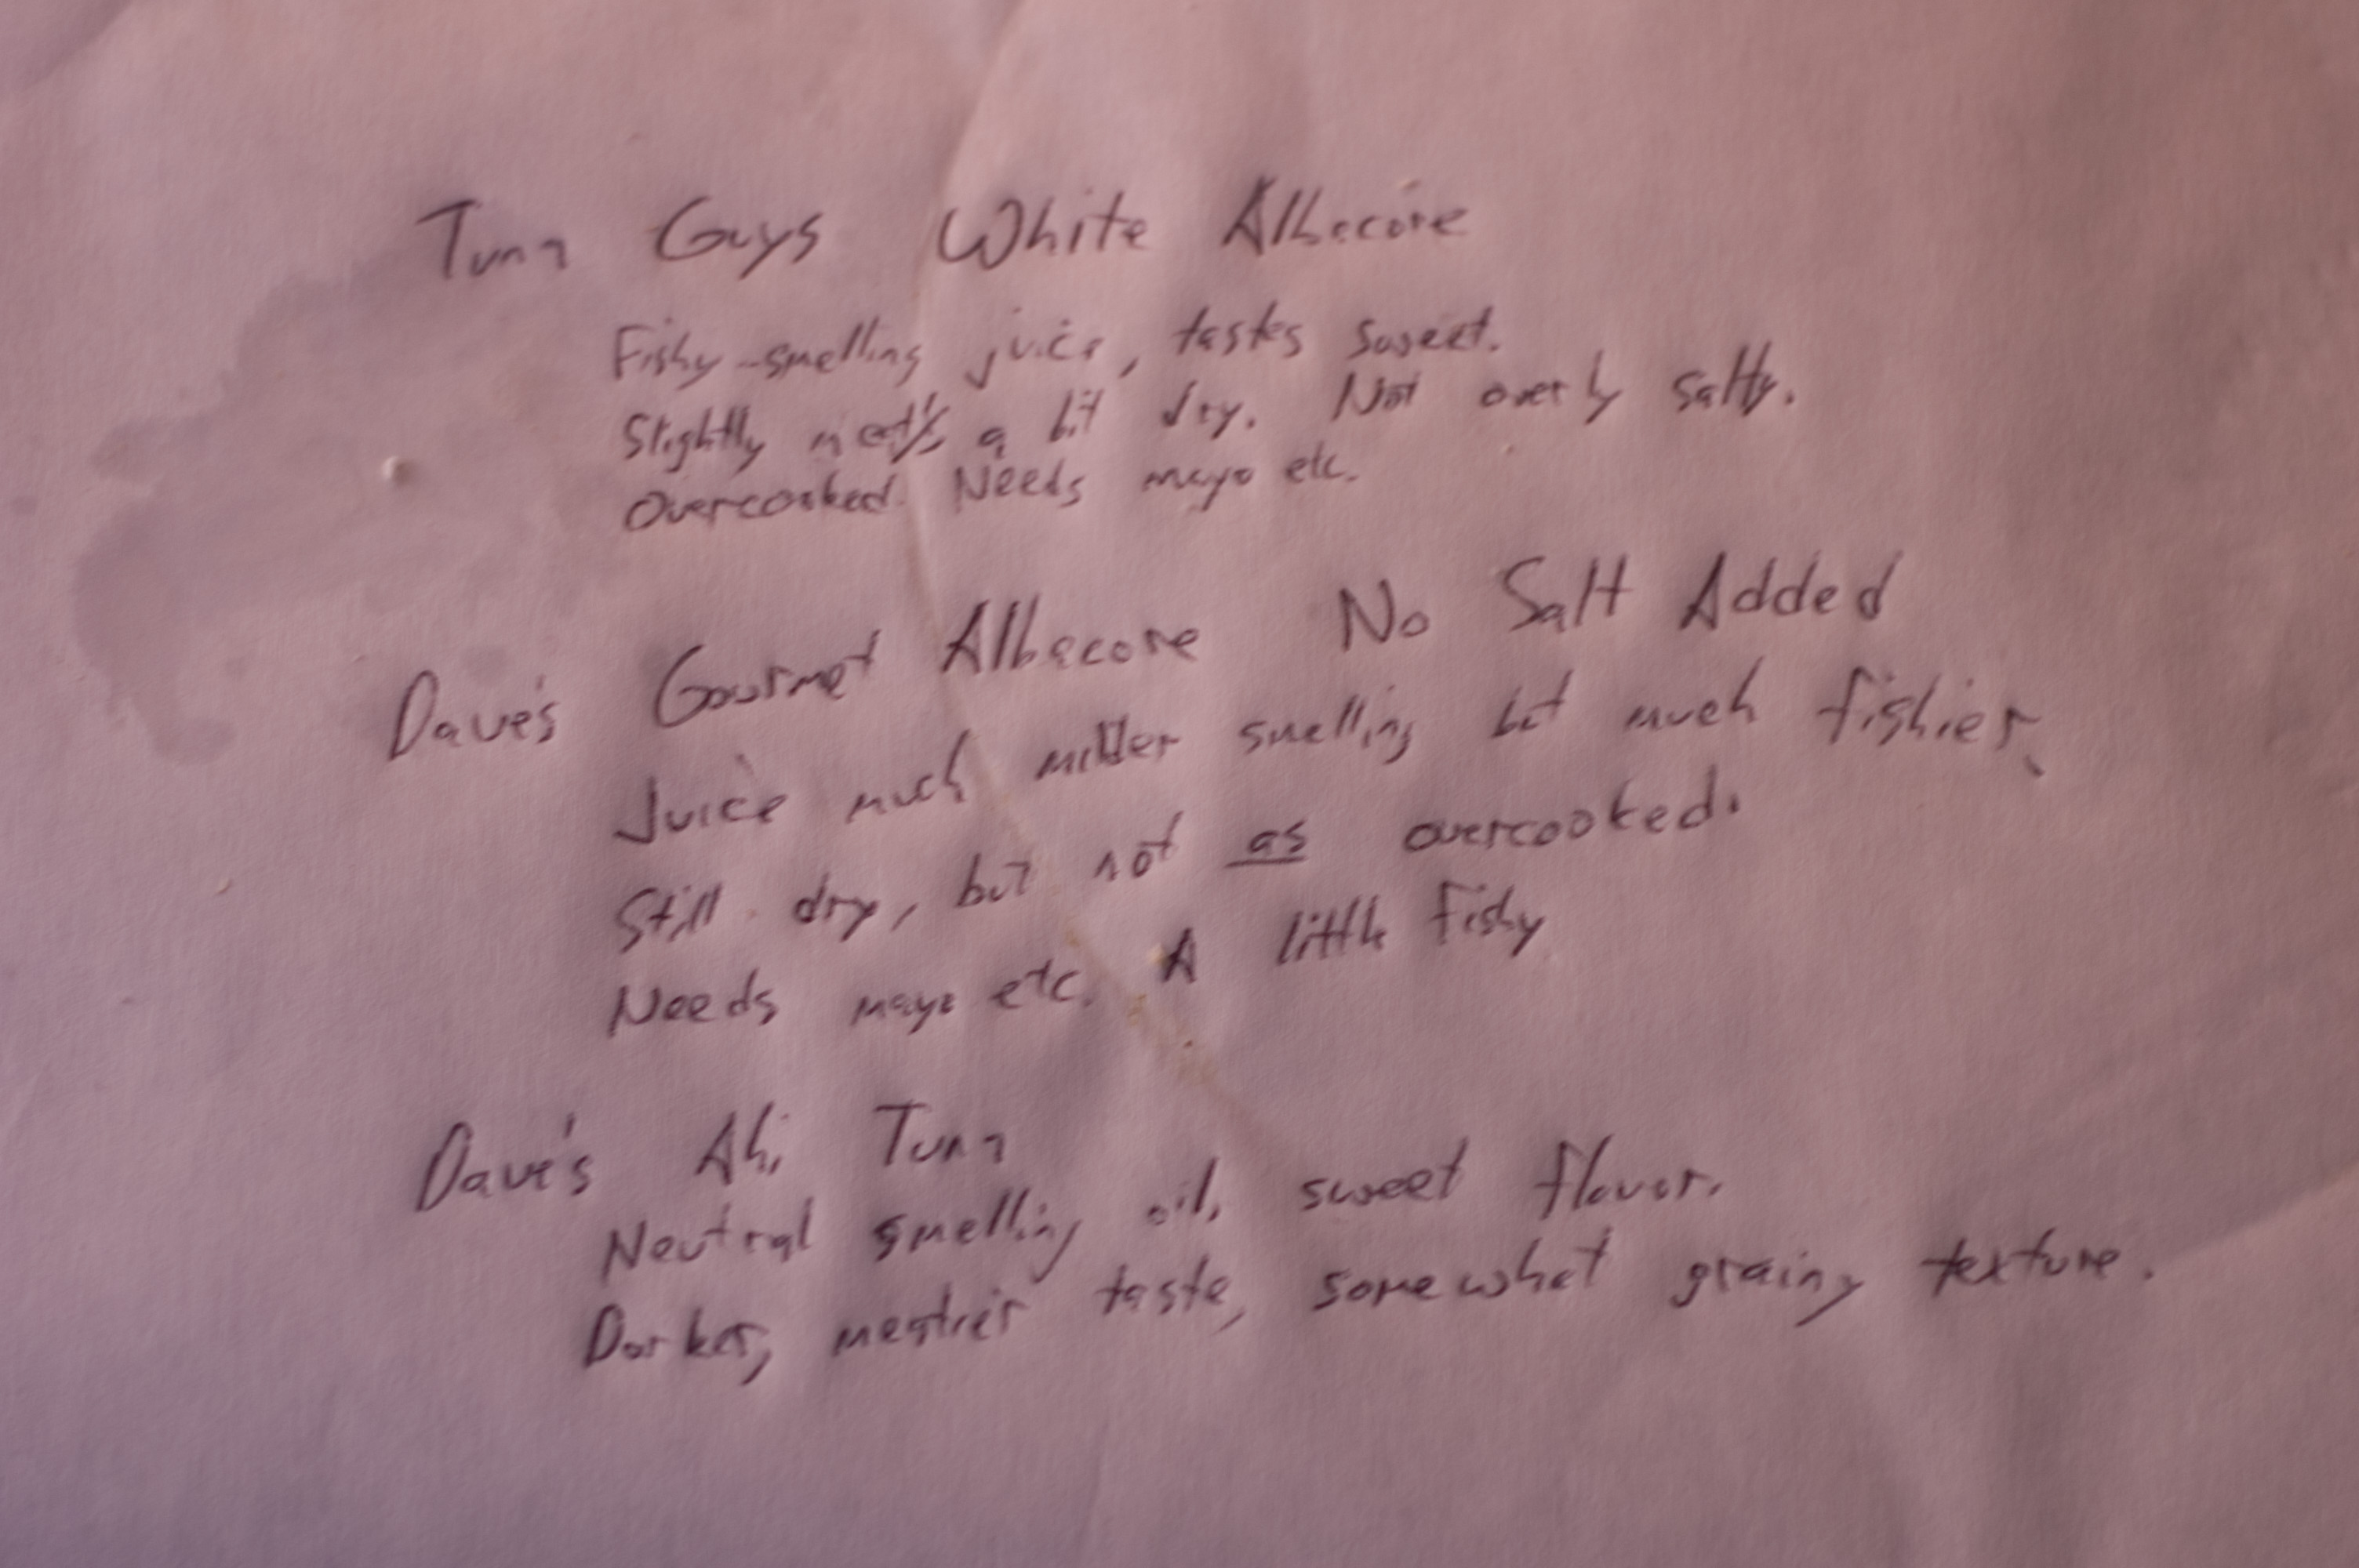 Tuna Guys White Albacore
Fishy-smelling juice, tastes sweet.
Slightly a bit dry. Not overly salty.
Overcooked. Needs mayo etc.
Dave's Gourmet Albacore No Salt Added
Juice much milder smelling but much fishier.
Still dry, but not as overcooked.
Needs mayo etc. A little fishy
Dave's Ahi Tuna
Neutral smelling oil, sweet flavor.
Darker, meatier taste, somewhat grainy texture.